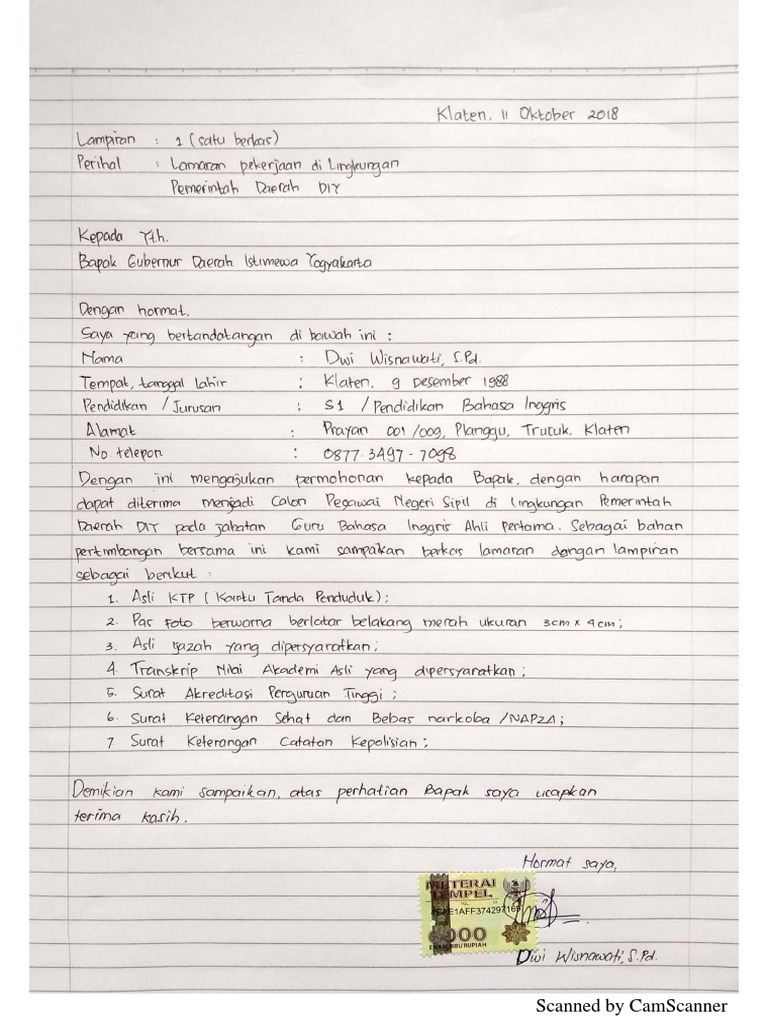 Klaten, 11 Oktober 2018
Lampiran : 1 (satu berkas)
Perihal : Lamaran pekerjaan di Lingkungan
Pemerintah Daerah DIY
Kepada Yth.
Bapak Gubernur Daerah Istimewa Yogyakarta
Dengan hormat,
Saya yang bertandatangan di bawah ini :
Nama : Dwi Wisnawati, S.Pd.
Tempat, tanggal lahir : Klaten, 9 Desember 1988
Pendidikan / Jurusan : S1 / Pendidikan Bahasa Inggris
Alamat : Prayan 001/009, Planggu, Trucuk, Klaten
No. telepon : 0877-3497-7098
Dengan ini mengajukan permohonan kepada Bapak, dengan harapan
dapat diterima menjadi Calon Pegawai Negeri Sipil di Lingkungan Pemerintah
Daerah DIY pada jabatan Guru Bahasa Inggris Ahli Pertama. Sebagai bahan
pertimbangan bersama ini kami sampaikan berkas lamaran dengan lampiran
sebagai berikut :
1. Asli KTP (Kartu Tanda Penduduk);
2. Pas foto berwarna berlatar belakang merah ukuran 3cm x 4cm;
3. Asli Ijazah yang dipersyaratkan;
4. Transkrip Nilai Akademi Asli yang dipersyaratkan;
5. Surat Akreditasi Perguruan Tinggi;
6. Surat Keterangan Sehat dan Bebas narkoba /NAPZA;
7. Surat Keterangan Catatan Kepolisian;
Demikian kami sampaikan, atas perhatian Bapak saya ucapkan
terima kasih.
Hormat saya,
METERAI
TEMPEL
6000
ENAM RIBU RUPIAH
Dwi Wisnawati, S.Pd.
Scanned by CamScanner